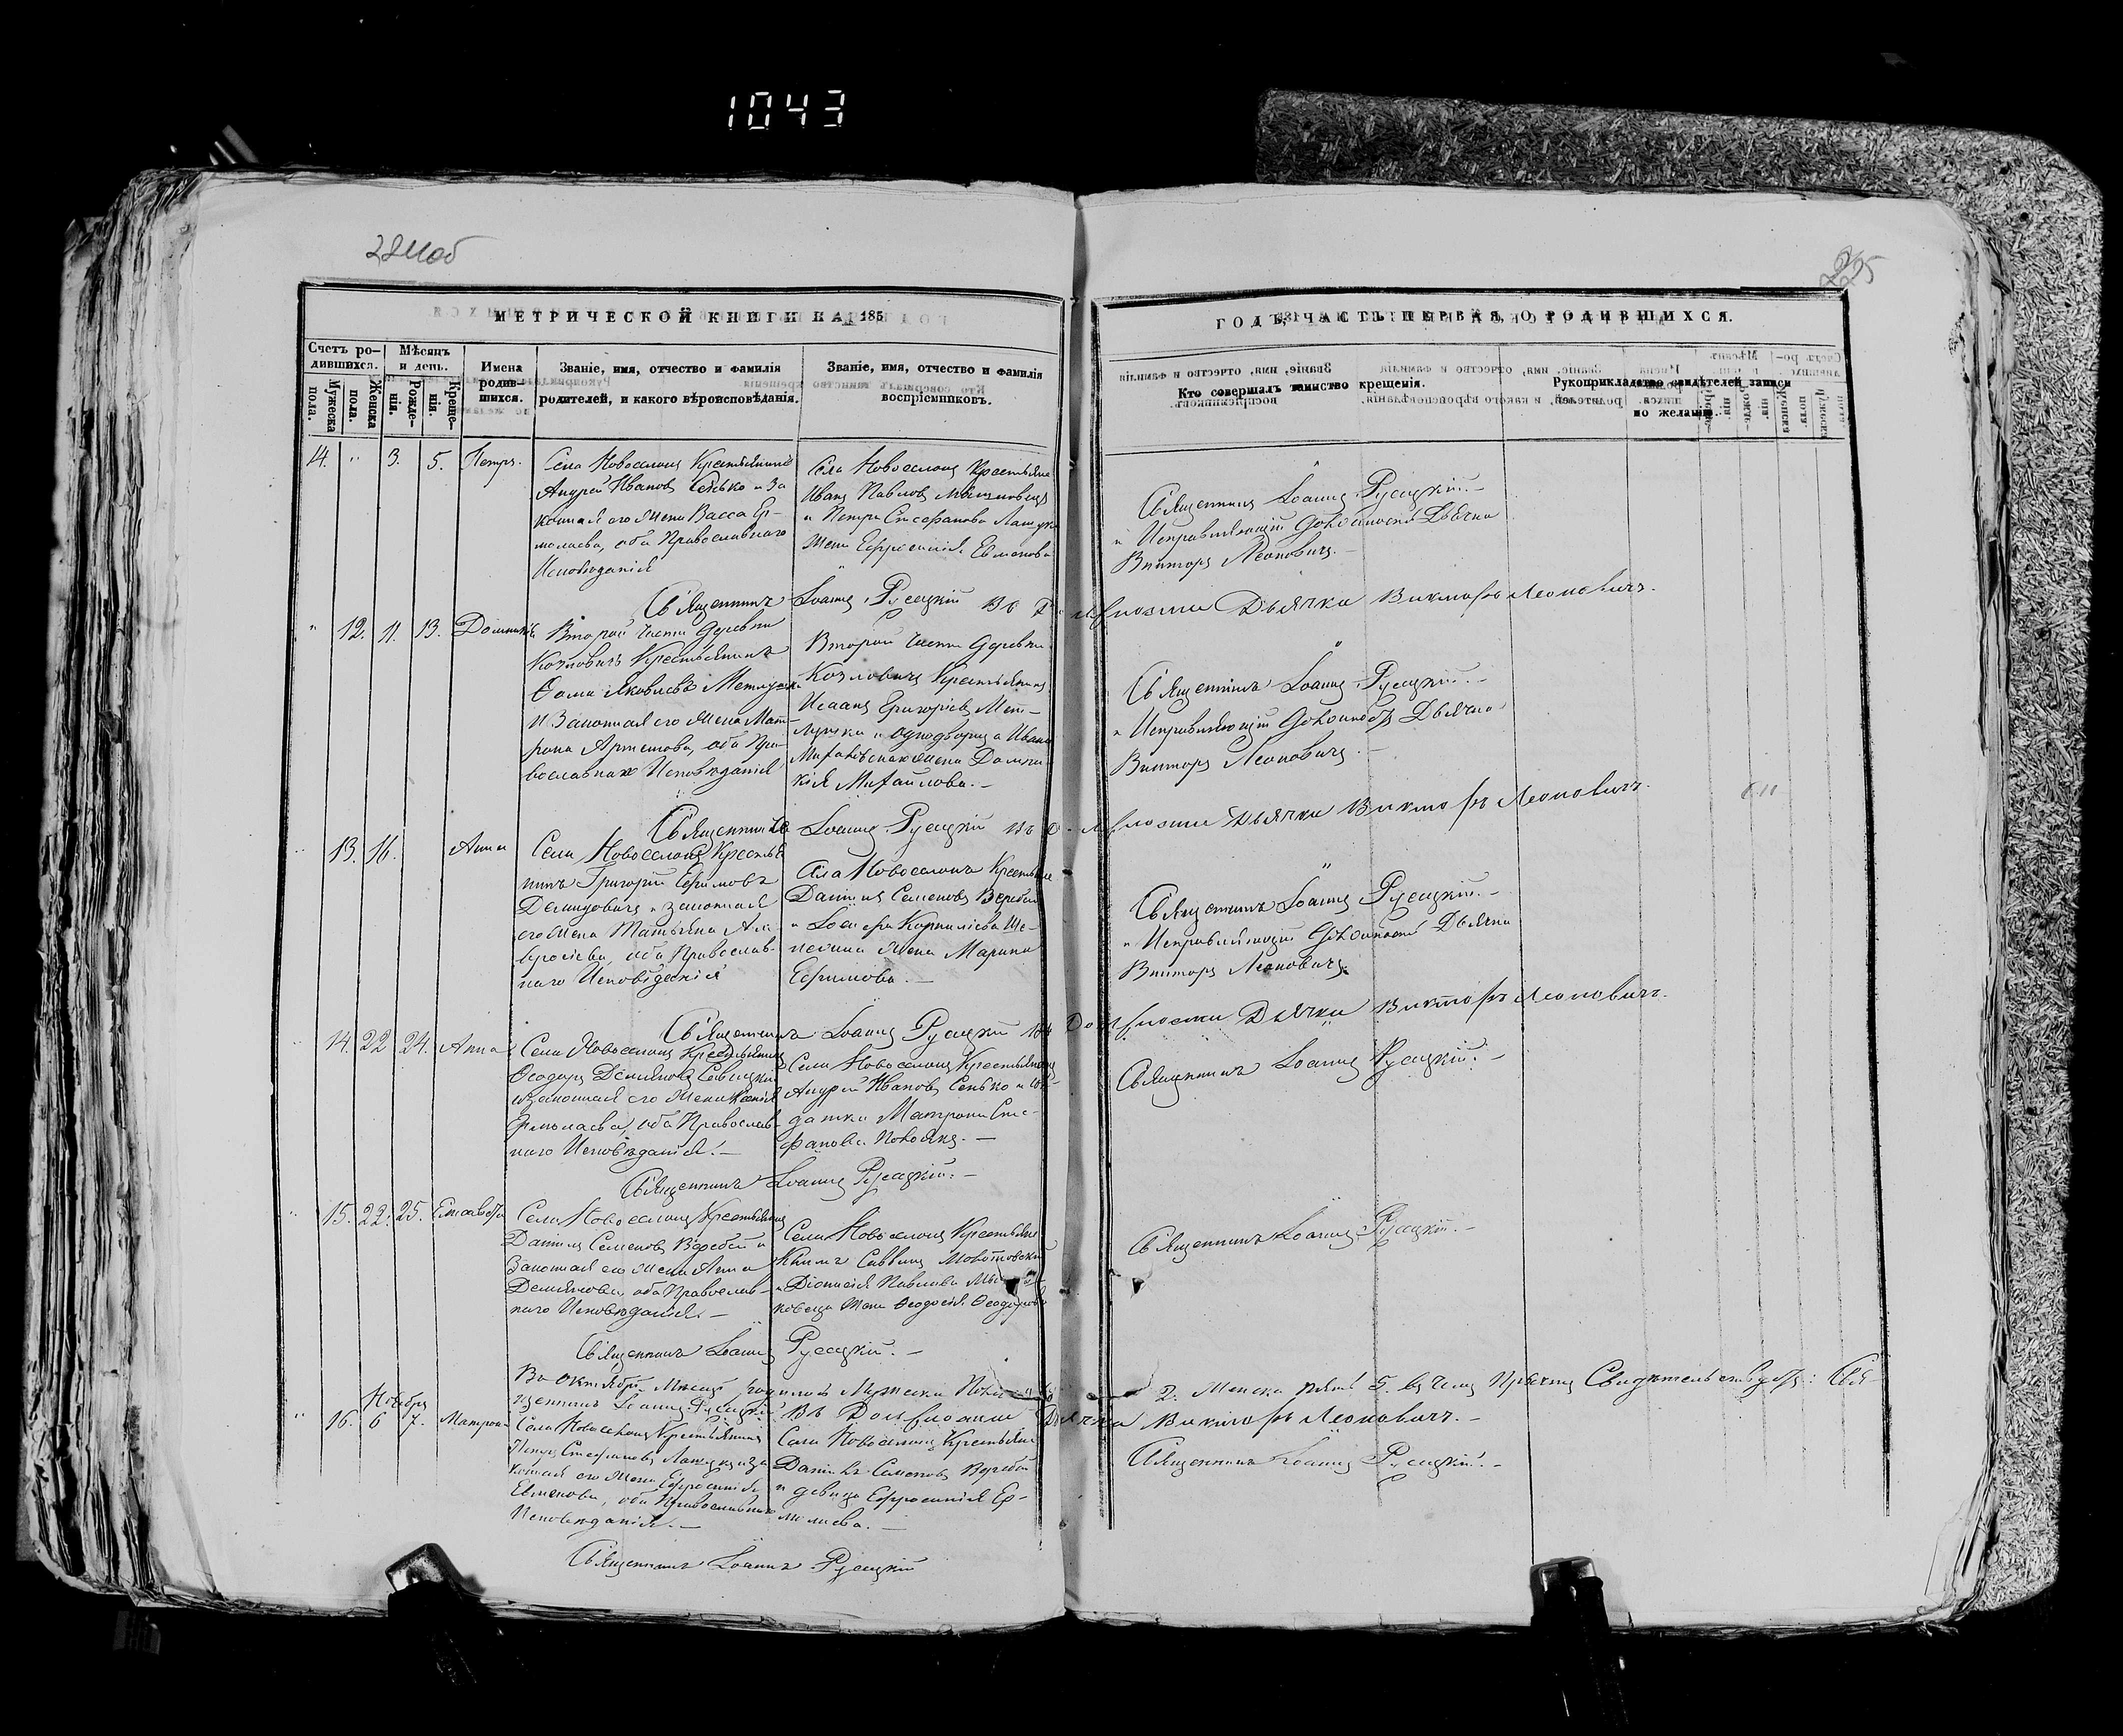 1043
284об
225
МЕТРИЧЕСКОЙ КНИГИ НА 185
ГОДЪ, ЧАСТЬ ПЕРВАЯ, О РОДИВШИХСЯ.
Счетъ ро-
дившихся.
Мужеска
пола.
Женска
пола.
Мѣсяцъ
и день.
Рожде-
нія.
Креще-
нія.
Имена
родив-
шихся.
Званіе, имя, отчество и фамилія
родителей, и какого вѣроисповѣданія.
Званіе, имя, отчество и фамилія
воспріемниковъ.
Кто совершалъ таинство крещенія.
Рукоприкладство свидѣтелей записи
по желанію.
14. " 3. 5. Петръ.
Села Новоселокъ Крестьянинъ
Андрей Ивановъ Сенько и За
конная его Жена Васса Ер-
молаева, оба Православнаго
Исповѣданія
Села Новоселокъ Крестьяне
Иванъ Павловъ
и Петра Стефанова
Жена Ефросинія Евменова
Священникъ Іоаннъ Русецкій.-
и Исправляющій Должность Дьячка
Викторъ Леоновичъ.-
Священникъ Іоаннъ Русецкій Въ Должности Дьячка Викторъ Леоновичъ.
" 12. 11. 13.
Второй части Деревни
Козловичъ Крестьянинъ
Ѳома Яковлевъ
и Законная его Жена Мат-
рона Артемова, оба Пра-
вославнаго Исповѣданія
Второй части Деревни
Козловичъ Крестьянинъ
Исаакъ Григорьевъ Мет-
и однодворца Ивана
жена Домни
кія Михайлова.-
Священникъ Іоаннъ Русецкій.-
и Исправляющій Должность Дьячка
Викторъ Леоновичъ.-
Священникъ Іоаннъ Русецкій Въ Должности Дьячка Викторъ Леоновичъ.
" 13. 16. Анна
Села Новоселокъ Крестья
нинъ Григорій Ефимовъ
Демидовичъ и законная
его Жена Татьяна Ам
вросіева, оба Православ-
наго Исповѣданія
Села Новоселокъ Крестьяне
Даніилъ Семеновъ Веребей
и Іосифа Корниліева Ще-
жена Марина
Ефимова.-
Священникъ Іоаннъ Русецкій.-
и Исправляющій Должность Дьячка
Викторъ Леоновичъ.
Священникъ Іоаннъ Русецкій Въ Должности Дьячка Викторъ Леоновичъ.
" 14. 22 24. Анна
Села Новоселокъ Крестьянинъ
Ѳеодоръ Деміановъ Савицкій
и законная его Жена Ксенія
Ермолаева, оба Православ-
наго Исповѣданія.-
Села Новоселокъ Крестьянинъ
Андрей Ивановъ Сенько и Сол-
датка Матрона Сте-
фанова
Священникъ Іоаннъ Русецкій.-
Священникъ Іоаннъ Русецкій.-
" 15. 22. 25.
Села Новоселокъ Крестьянинъ
Даніилъ Семеновъ Веребей и
Законная его Жена Анна
Деміянова, оба Православ-
наго Исповѣданія.-
Села Новоселокъ Крестьяне
Саввинъ
и Діонисія Павлова
Жена Ѳеодосія Ѳеодорова
Священникъ Іоаннъ Русецкій.-
Священникъ Іоаннъ Русецкій.-
Въ Октябрѣ Мѣсяцѣ родилось Мужеска Пола 2. Женска пять 5. въ чемъ Свидѣтельствуютъ: Свя-
щенникъ Іоаннъ Русецкій Въ Должности Дьячка Викторъ Леоновичъ.-
Ноября
" 16. 6 7. Матрона
Села Новоселокъ Крестьянинъ
Петръ Стефановъ и за
конная его Жена Ефросинія
Евменова, оба Православнаго
Исповѣданія.-
Села Новоселокъ Крестьяне
Даніилъ Семеновъ Веребей
и девица Ефросинія Ер-
Священникъ Іоаннъ Русецкій.-
Священникъ Іоаннъ Русецкій